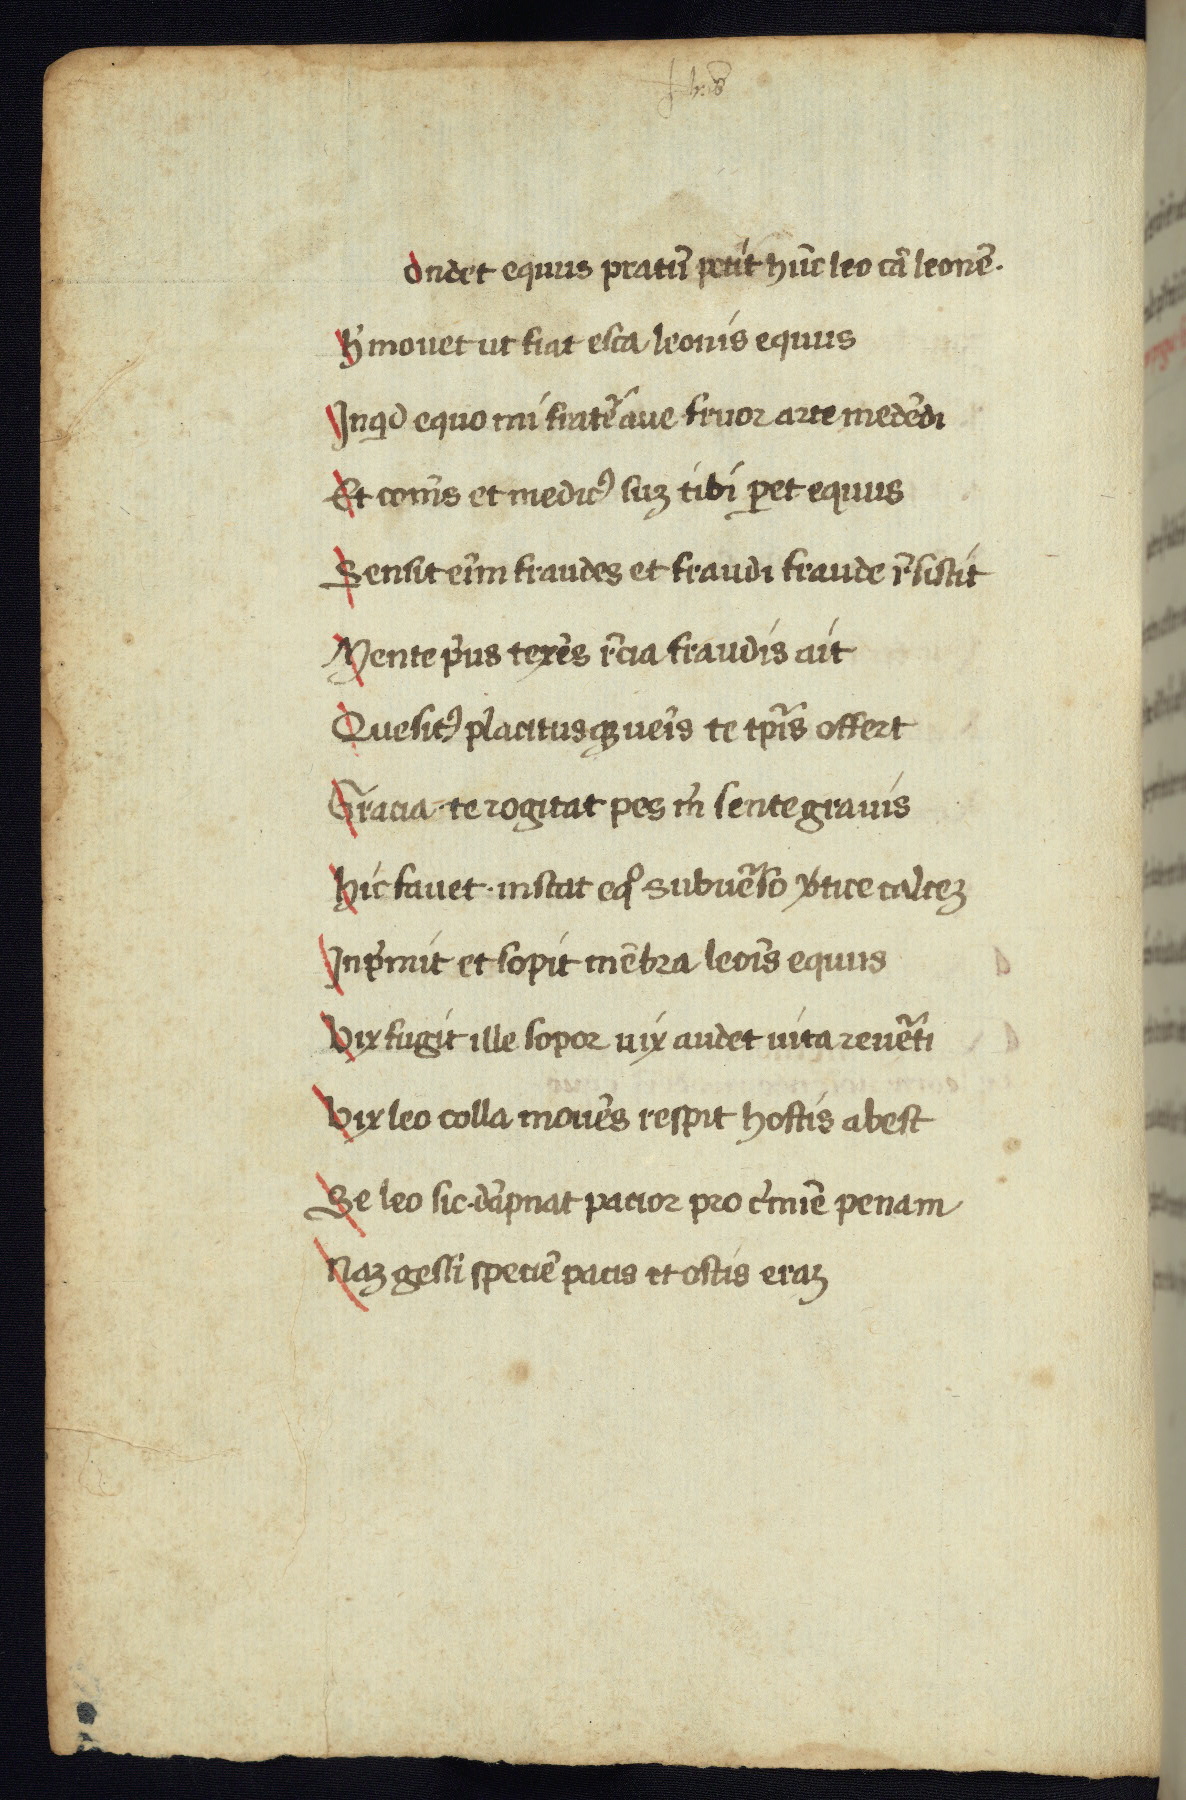 Jhūs
ondet equus pratū petit hūc leo cā leonē.
h̄ mouet ut fiat esca leonis equus
Inqͥd equo mi frater̄ aue fruor arte medēdi
Et comīs et medicꝰ suꝫ tibi ꝑet equus
Sensit eīm fraudes et fraudi fraude rēsistit
Mente pͥus texēs rēcia fraudis ait
Quesitꝰ placitusqꝫ ueīs te tp̄ris offert
Gracia te rogitat pes m̄ sente grauis
hic fauet · instat eqͦ subuēso ꝟtice calceꝫ
Inpͥmit et sopit mēbra leoīs equus
Vix fugit ille sopor uix audet uita reuēti
Vix leo colla mouēs respit hostis abest
Se leo sic · dāpnat pacior pro cͥmīe penam
Naꝫ gessi speciē pacis et ostis eraꝫ